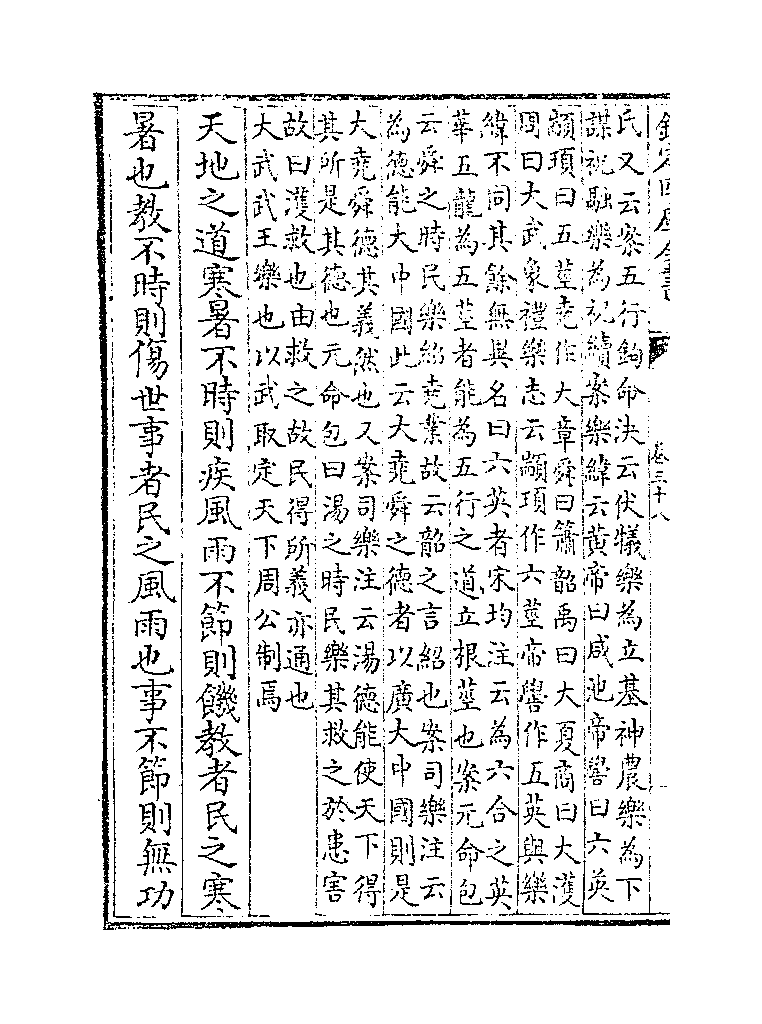 欽定四庫全書 卷三十八
氏又云案五行鉤命決云伏犧樂為立基神農樂為下
謀祝融樂為祝續案樂緯云黄帝曰咸池帝嚳曰六英
顓頊曰五莖堯作大章舜曰簫韶禹曰大夏商曰大濩
周曰大武象禮樂志云顓頊作六莖帝嚳作五英與樂
緯不同其餘無異名曰六英者宋均注云為六合之英
華五龍為五莖者能為五行之道立根莖也案元命包
云舜之時民樂紹堯業故云韶之言紹也案司樂注云
為德能大中國此云大堯舜之德者以廣大中國則是
大堯舜德其義然也又案司樂注云湯德能使天下得
其所是其德也元命包曰湯之時民樂其救之於患害
故曰濩救也由救之故民得所義亦通也
大武武王樂也以武取定天下周公制焉
天地之道寒暑不時則疾風雨不節則饑教者民之寒
暑也教不時則傷世事者民之風雨也事不節則無功